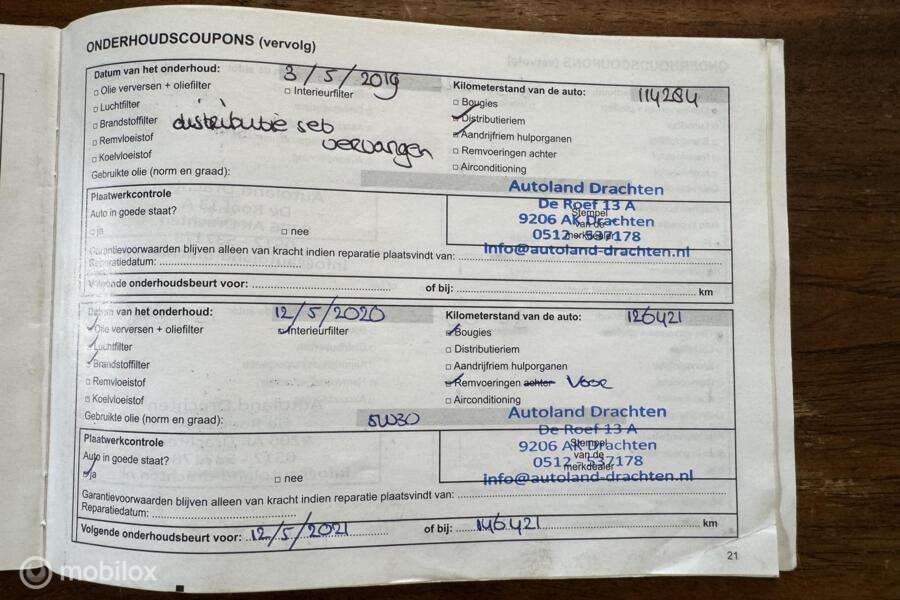 ONDERHOUDSCOUPONS (vervolg)
Datum van het onderhoud: 3/5/2019 Kilometerstand van de auto: 114284
Olie verversen + oliefilter Interieurfilter Bougies
Luchtfilter Distributieriem
Brandstoffilter distributie set Aandrijfriem hulporganen
Remvloeistof vervangen Remvoeringen achter
Koelvloeistof Airconditioning
Gebruikte olie (norm en graad):
Autoland Drachten
Plaatwerkcontrole De Roef 13 A
Auto in goede staat? 9206 AK Drachten
Stempel van de merkdealer
ja nee 0512 - 537178
info@autoland-drachten.nl
Garantievoorwaarden blijven alleen van kracht indien reparatie plaatsvindt van:
Reparatiedatum:
Volgende onderhoudsbeurt voor: of bij: km
Datum van het onderhoud: 12/5/2020 Kilometerstand van de auto: 126421
Olie verversen + oliefilter Interieurfilter Bougies
Luchtfilter Distributieriem
Brandstoffilter Aandrijfriem hulporganen
Remvloeistof Remvoeringen achter Voor
Koelvloeistof Airconditioning
Gebruikte olie (norm en graad): 5W30
Autoland Drachten
Plaatwerkcontrole De Roef 13 A
Auto in goede staat? 9206 AK Drachten
Stempel van de merkdealer
ja nee 0512 - 537178
info@autoland-drachten.nl
Garantievoorwaarden blijven alleen van kracht indien reparatie plaatsvindt van:
Reparatiedatum:
Volgende onderhoudsbeurt voor: 12/5/2021 of bij: 146421 km
21
mobilox